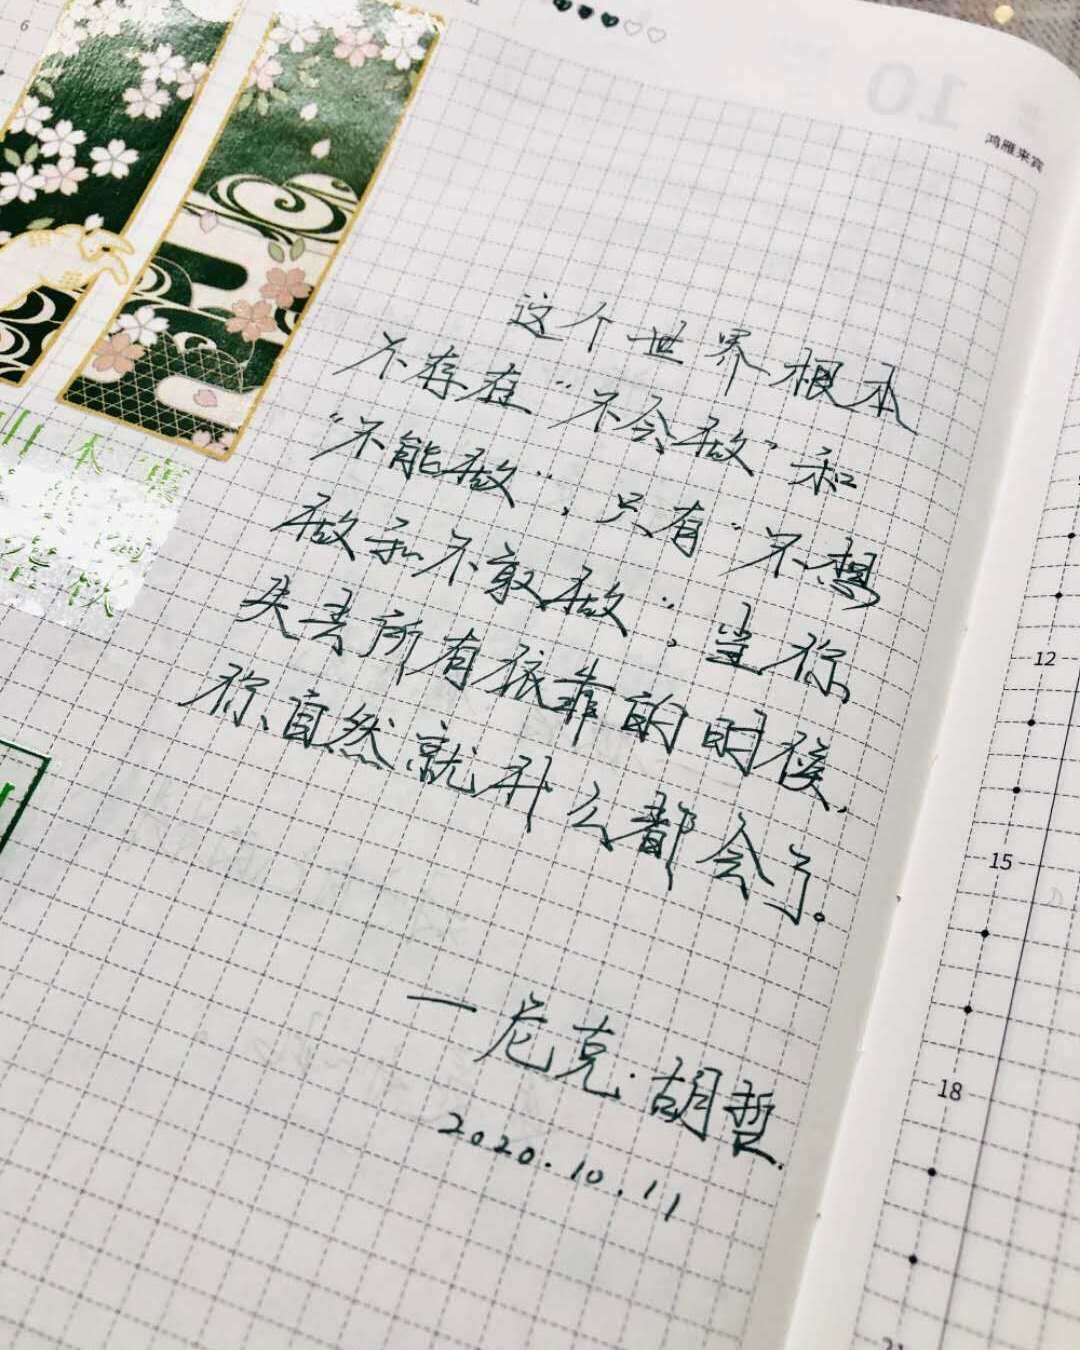 6
10
鸿雁来宾
这个世界根本
不存在“不会做”和
“不能做”,只有“不想
做和不敢做”,当你
失去所有依靠的时候,
你自然就什么都会了。
一尼克·胡哲.
2020.10.11
12
15
18
21